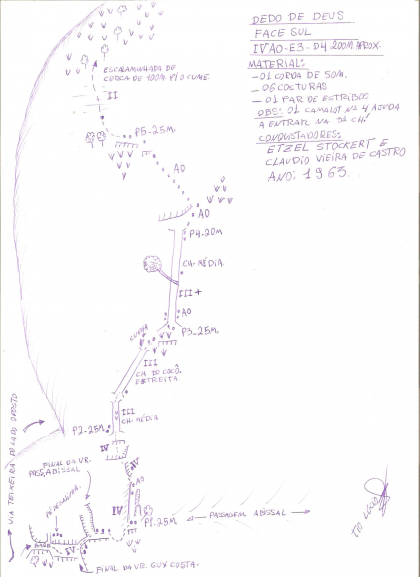 DEDO DE DEUS
FACE SUL
IV AO-E3-D4 200M. APROX.
MATERIAL:
-01 CORDA DE 50M.
-06 COSTURAS
-01 PAR DE ESTRIBOS
OBS: 01 CAMALOT Nº 4 AJUDA
A ENTRAR NA 3ª CH.
CONQUISTADORES:
ETZEL STOCKERT E
CLAUDIO VIEIRA DE CASTRO
ANO: 1963.
ESCALAMINHADA DE
CERCA DE 100M P/ O CUME.
II
P5-25M.
AO
AO
P4-20M
CH. MÉDIA
III+
AO
CUNHA
P3-25M.
III
CH. DO COCÔ
ESTREITA
III
CH. MÉDIA
P2-25M.
IV
VIA TEIXEIRA DO LADO OPOSTO
FINAL DA VR.
PASS. ABISSAL
IV
AO
IV
P1-25M.
PASSAGEM ABISSAL
IV
FINAL DA VR. GUY COSTA.